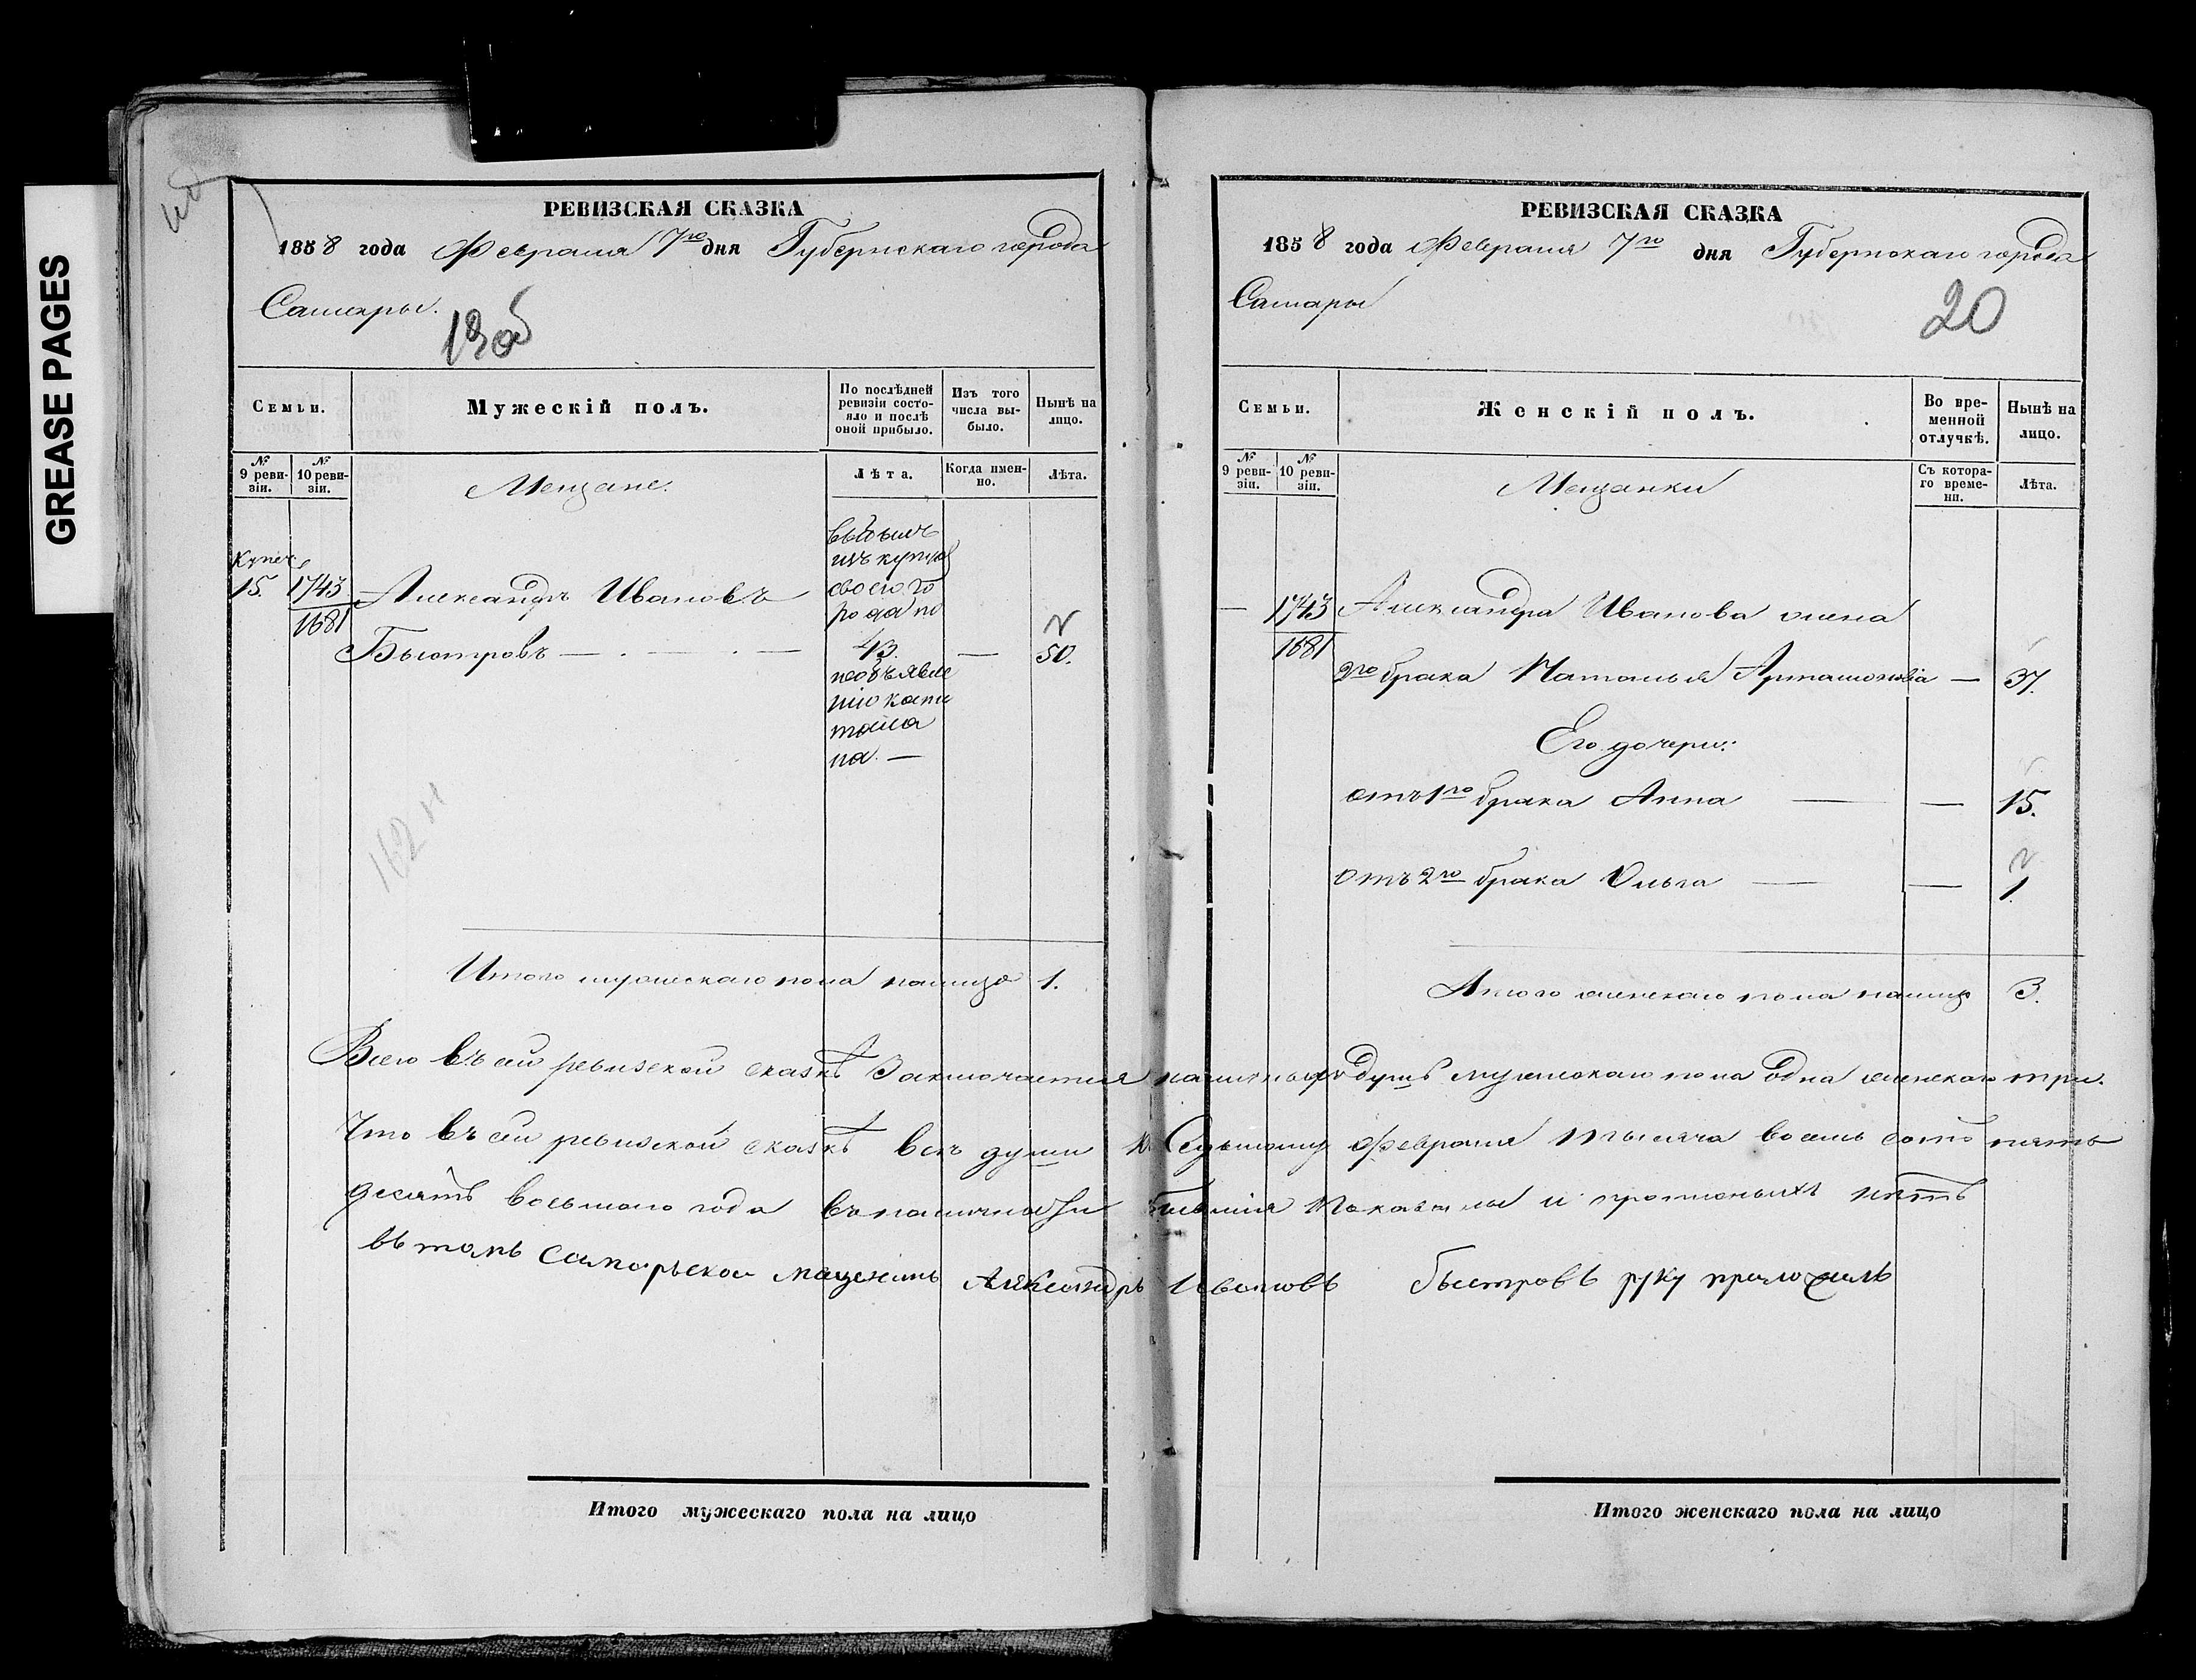 GREASE PAGES
РЕВИЗСКАЯ СКАЗКА
1858 года Февраля 7го дня Губернскаго города
Самары.
19 об
Семьи.
Мужескій полъ.
По послѣдней ревизіи состояло и послѣ оной прибыло.
Изъ того числа выбыло.
Нынѣ на лицо.
№ 9 ревизіи.
№ 10 ревизіи.
Мещане.
Лѣта.
Когда именно.
Лѣта.
Купеч
15.
1743
1681
Александръ Ивановъ
Быстровъ —
выбылъ
изъ купцов
своего го
рода по
43.
необъявле
нію капи
тала
на. —
—
50.
162
Итого мужескаго пола налицо 1.
РЕВИЗСКАЯ СКАЗКА
1858 года Февраля 7го дня Губернскаго города
Самары
20
Семьи.
Женскій полъ.
Во временной отлучкѣ.
Нынѣ на лицо.
№ 9 ревизіи.
№ 10 ревизіи.
Мещанки
Съ котораго времени.
Лѣта.
— 1743
1681
Александра Иванова жена
2го брака Наталья Артамонова — 37.
Его дочери:
отъ 1го брака Анна — — 15.
отъ 2го брака Ольга — — 1.
Итого женскаго пола налицо 3.
Всего въ сей ревизской сказкѣ заключается наличныхъ душъ мужескаго пола одна женскаго три.
Что въ сей ревизской сказкѣ всѣ души къ Седьмому Февраля тысяча восемь сотъ пять
десятъ восьмого года въ наличности бывшія показаны и прописныхъ нѣтъ
въ томъ Самарьской мещенинъ Александръ Ивановъ Быстровъ руку приложилъ
Итого мужескаго пола на лицо
Итого женскаго пола на лицо